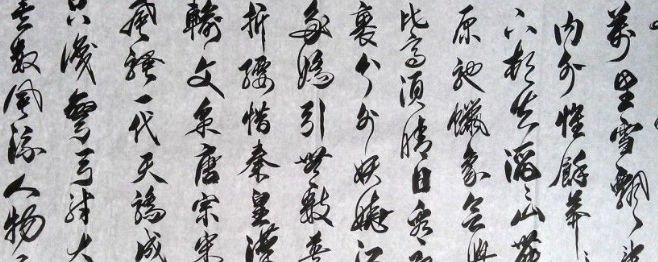 萬里雪飄
内外惟餘莽
下頓失滔滔山舞
原馳蠟象欲與
比高須晴日看
裹分外妖嬈江
多嬌引無數英
折腰惜秦皇漢
輸文采唐宗宋
風騷一代天驕成
只識彎弓射大
矣數風流人物